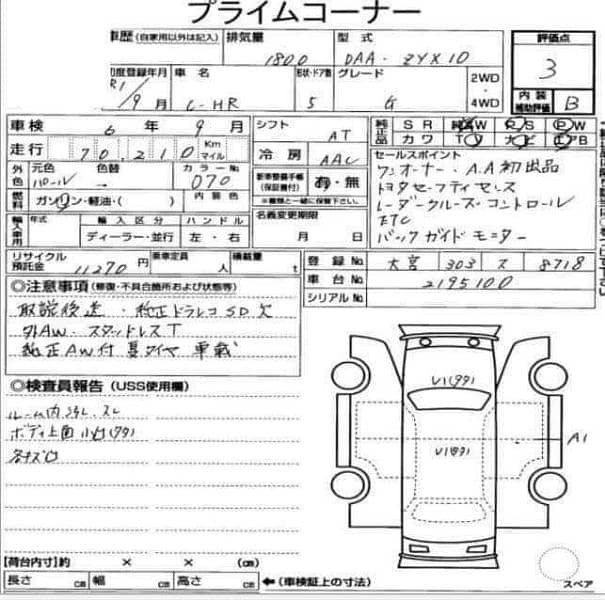 プライムコーナー
車歴 (自家用以外は記入) 排気量 1800 型式 DAA-ZYX10 評価点 3
初度登録年月 R1/9月 車名 C-HR 形状・ドア数 5 グレード G 2WD・4WD
内装補助評価 B
車検 6年9月 シフト AT
純正品 SR 純正AW PS PW
カワ TV ナビ エアB
走行 70,210 Km マイル 冷房 AAC
セールスポイント
ワンオーナー・A.A初出品
トヨタセーフティセンス
レーダークルーズ・コントロール
ETC
バックガイドモニター
外色 元色 パール 色替 → カラーNo 070
新車整備手帳 (保証書付) 有・無
※書類と一緒に保管下さい。
燃料 ガソリン・軽油・( ) 内装色
名義変更期限 月 日
輸入車用 年式 輸入区分 ディーラー・並行 ハンドル 左・右
リサイクル預託金 11270円 乗車定員 人 積載量 t
登録No. 大宮 303 ス 8718
車台No. 2195100
シリアルNo.
◎注意事項 (修復・不具合箇所および状態等)
取説後送・純正ドラレコSD欠
外AW・スタッドレスT
純正AW付夏タイヤ車載
◎検査員報告 (USS使用欄)
ルーム内ヨゴレ・スレ
ボディ上面小凹(ワワ)
各キズ凹
V1(ワワ)
V1(ワワ)
A1
【荷台内寸】約 × × (㎝)
長さ ㎝ 幅 ㎝ 高さ ㎝ ←(車検証上の寸法)
スペア